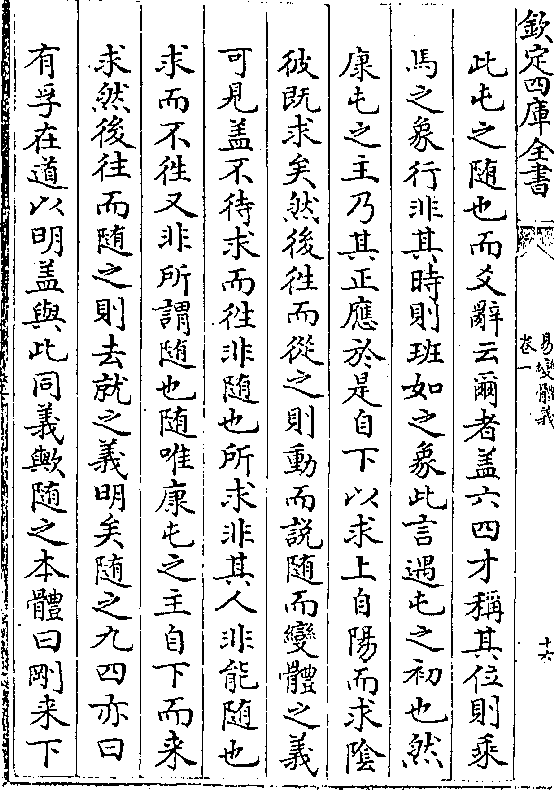 欽定四庫全書
易變體義
卷一
十六
此屯之随也而爻辭云爾者盖六四才稱其位則乘
馬之象行非其時則班如之象此言遇屯之初也然
康屯之主乃其正應於是自下以求上自陽而求陰
彼既求矣然後徃而從之則動而説随而變體之義
可見盖不待求而徃非随也所求非其人非能随也
求而不徃又非所謂随也随唯康屯之主自下而来
求然後往而随之則去就之義明矣随之九四亦曰
有孚在道以明盖與此同義歟随之本體曰剛来下